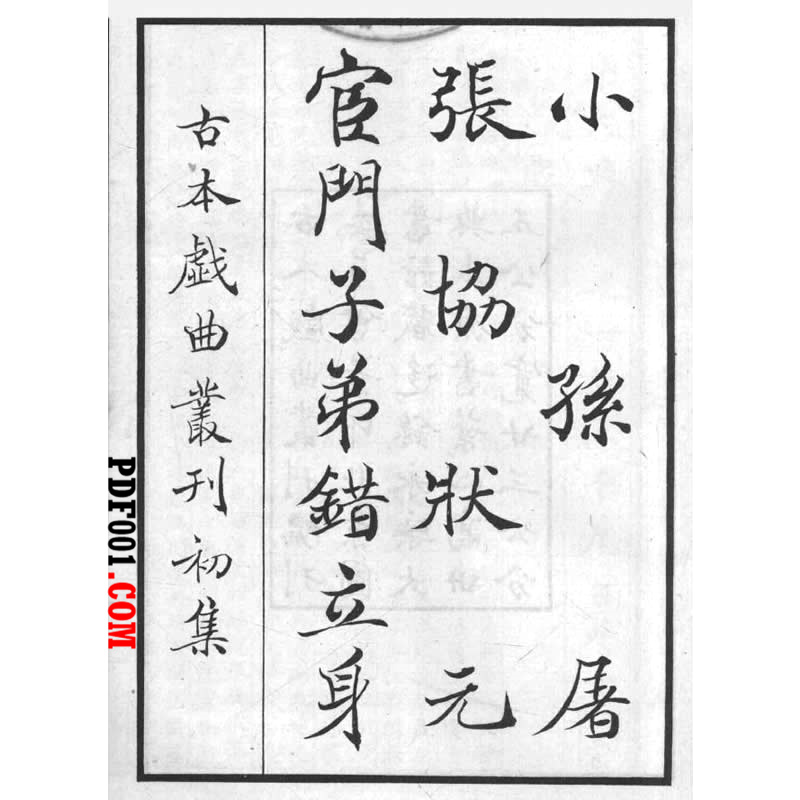 小孫屠
張協狀元
宦門子弟錯立身
古本戯曲叢刊初集
PDF001.COM